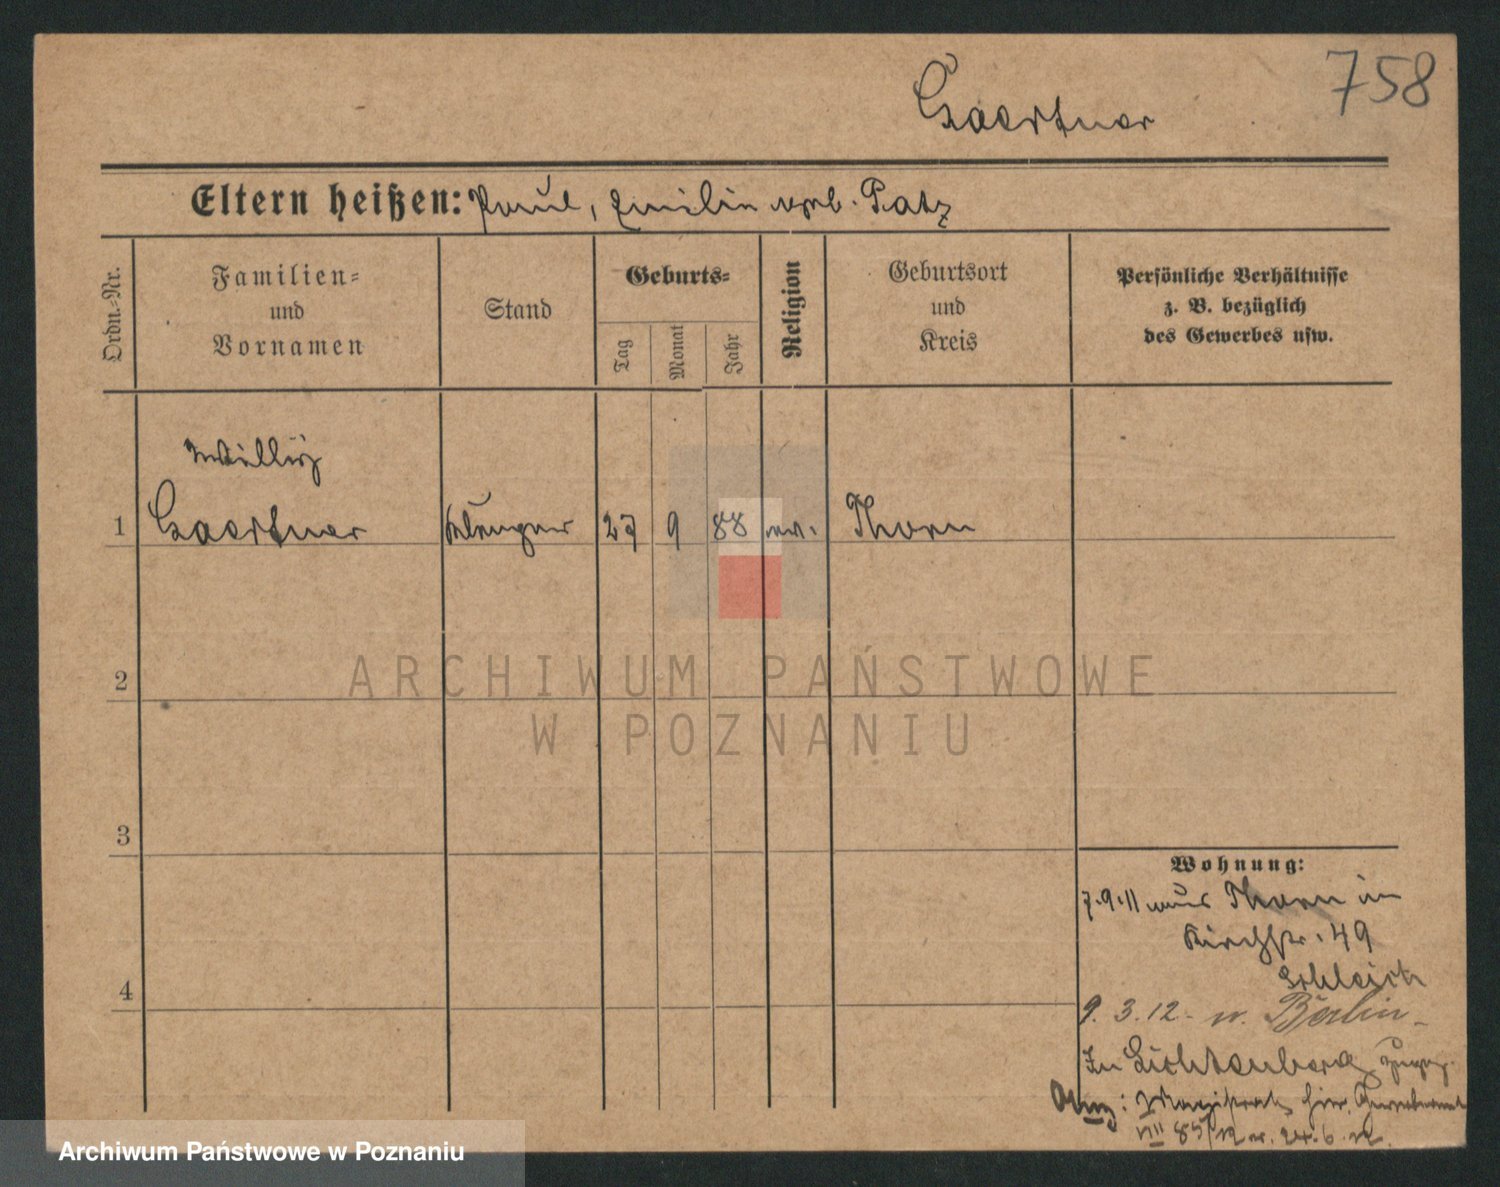 758
Gaertner
Eltern heißen: Paul, Emilie geb. Patz
Ordn.-Nr.
Familien-
und
Vornamen
Stand
Geburts-
Tag
Monat
Jahr
Religion
Geburtsort
und
Kreis
Persönliche Verhältnisse
z. B. bezüglich
des Gewerbes usw.
Willy
1 Gaertner Klempner 27 9 88 ev. Thorn
2
3
4
ARCHIWUM PAŃSTWOWE
W POZNANIU
Wohnung:
7.9.11 aus Thorn in
Kirchstr. 49
9.3.12 - n. Berlin -
In Lichtenberg
Anz: Magistrat hier
VIII 85/12 v. 24.6.12.
Archiwum Państwowe w Poznaniu